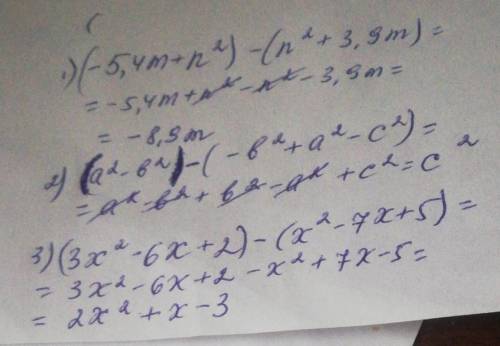 (
1) (-5,4m+n²) - (n² + 3,9m) =
= -5,4m + n² - n² - 3,9m =
= -8,9m
2) (a² - b²) - (-b² + a² - c²) =
= a² - b² + b² - a² + c² = c²
3) (3x² - 6x + 2) - (x² - 7x + 5) =
= 3x² - 6x + 2 - x² + 7x - 5 =
= 2x² + x - 3